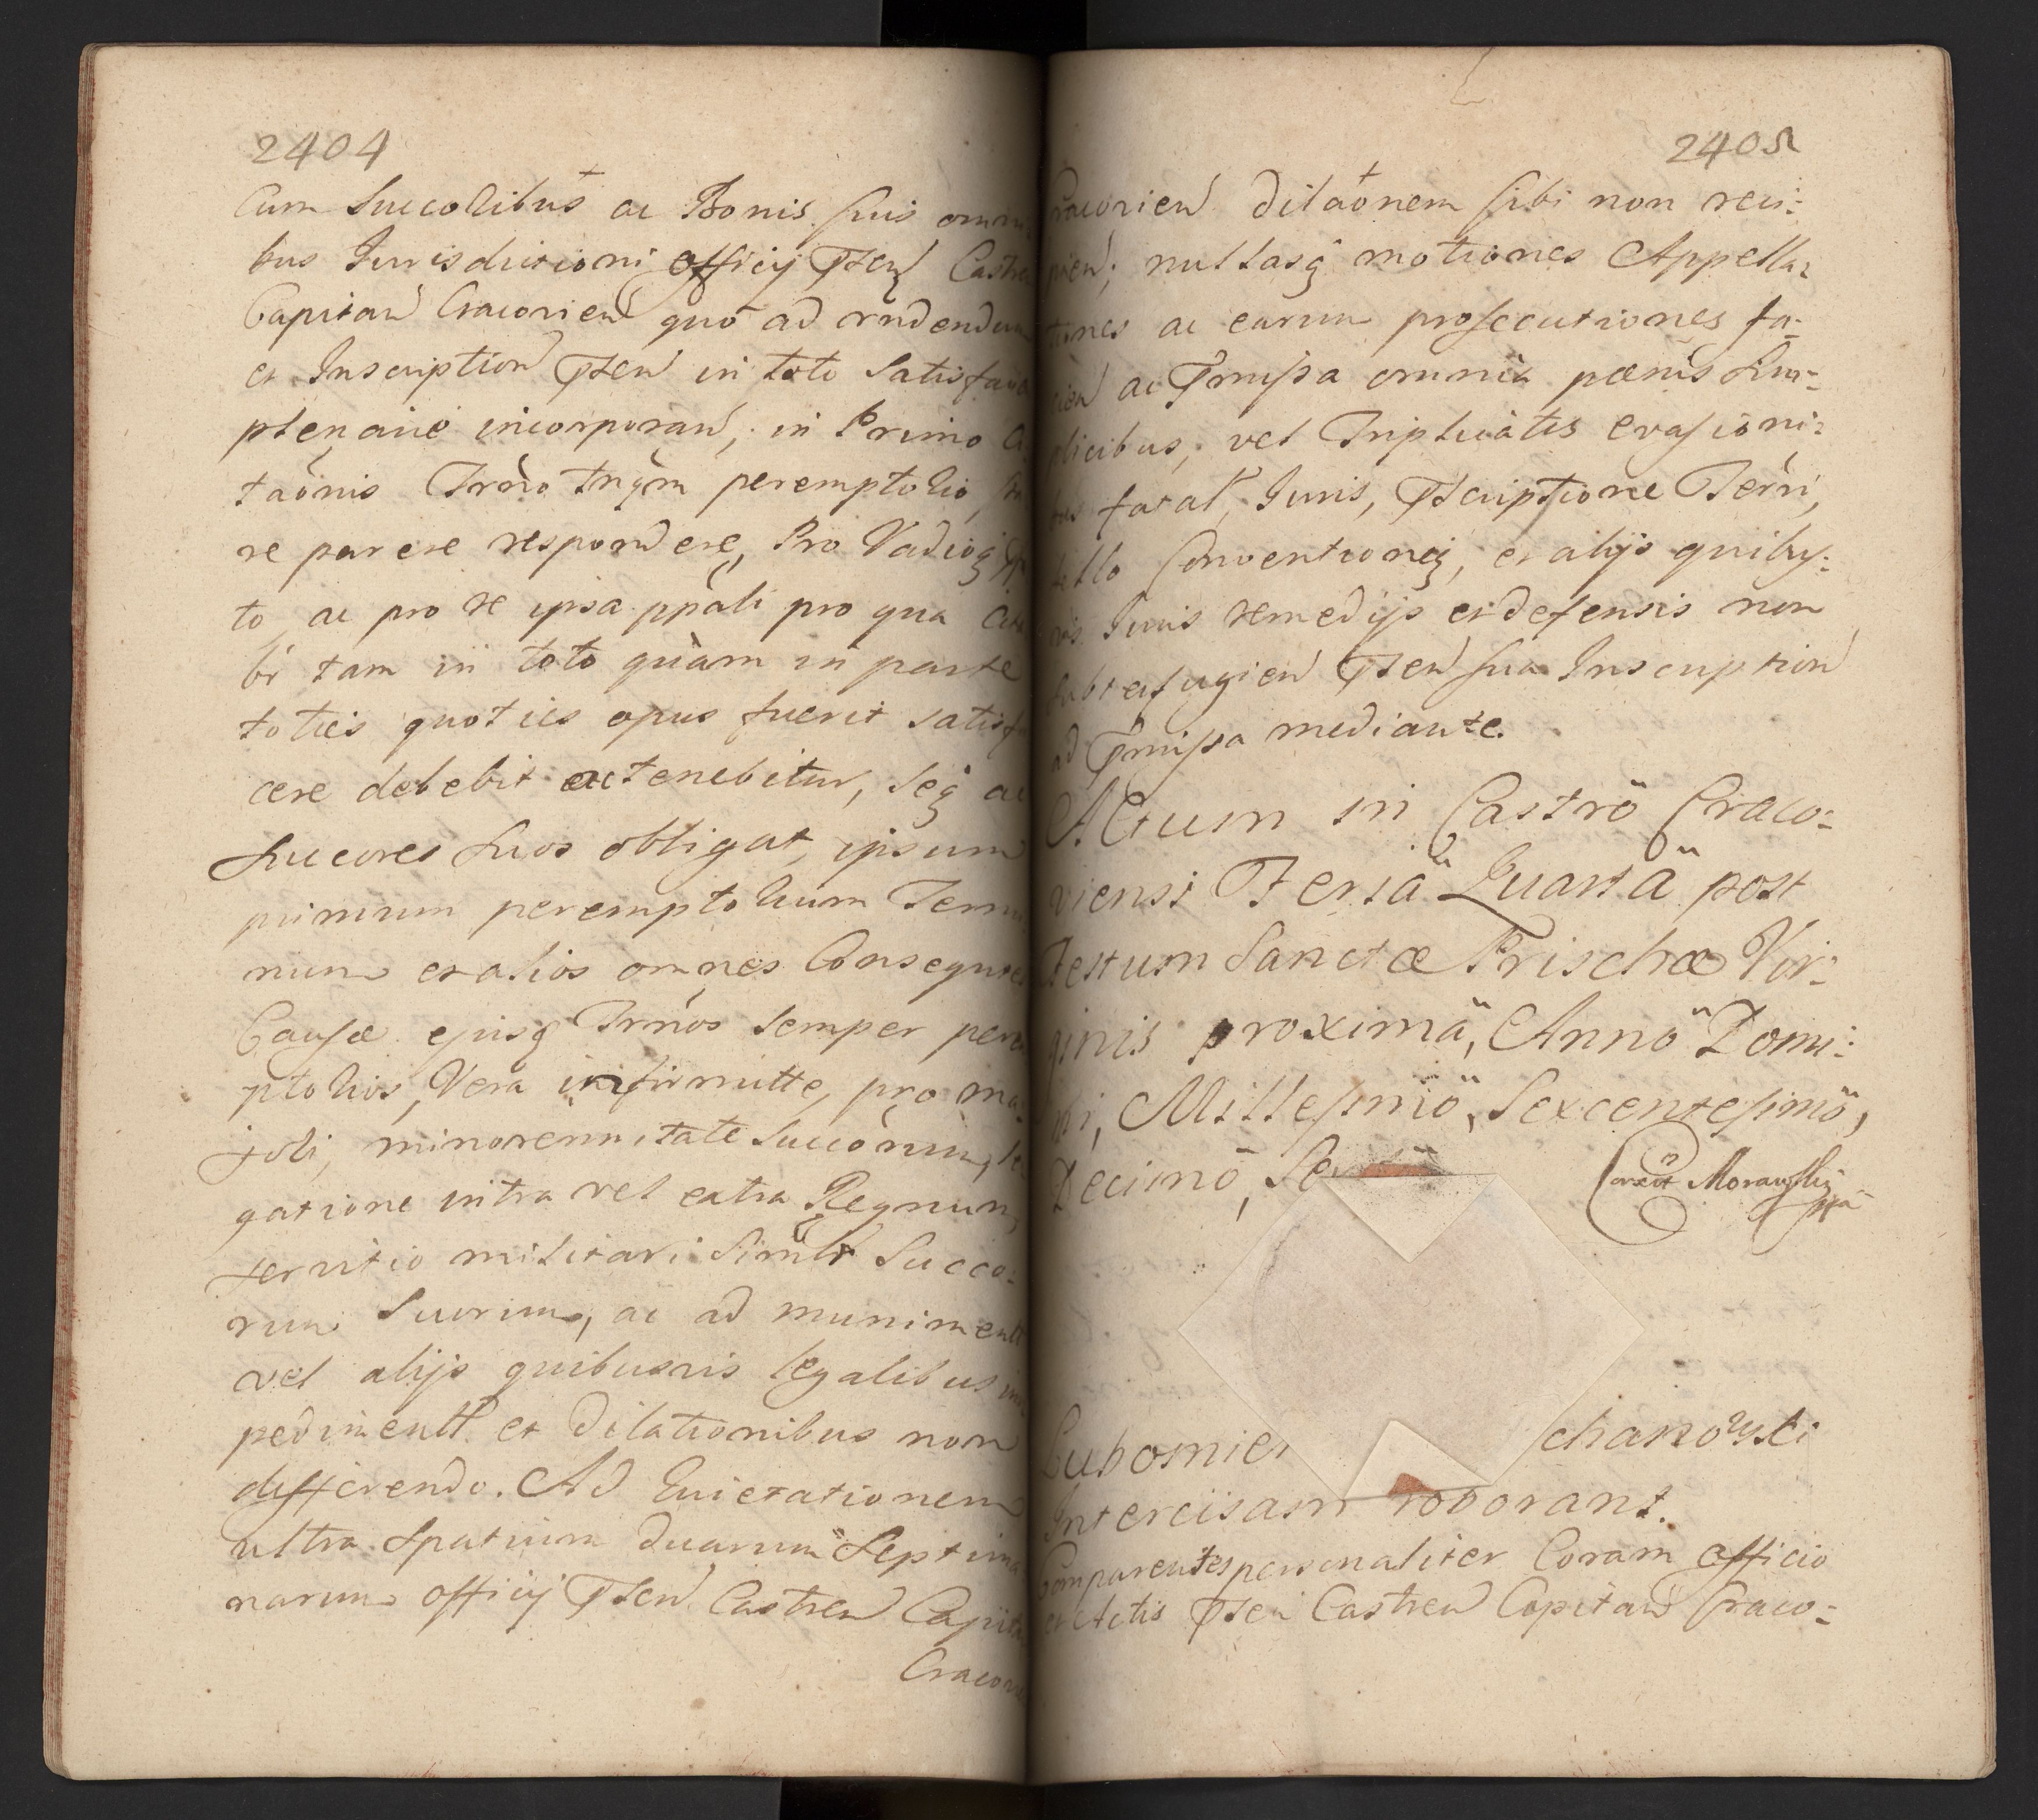 2404
Cum Succoribus ac Bonis suis omni
bus Jurisdictioni Officij Psten Castren
Capitan Cracovien quo ad rndendum
et Inscription Psten in toto Satisfacien
plenarie incorporand, in Primo Ci
taõnis Trno tnqm peremptorio, sta
re parere respondere, Pro Vadioq
to ac pro re ipsa ppali pro qua
br tam in toto quàm in parte
toties quoties opus fuerit satisfa
cere debebit ac tenebitur, Seq ac
Succores suos obligat, ipsum
primum peremptorium Termi
num et alios omnes Consequtes
Causæ ejusq Trnos semper perem
ptorios, Vera infirmitte, pro ma
jori, minorennitate Succorum, le
gatione intra vel extra Regnum,
servitio militari Simlr Succo-
rum Suorum, ac ad muniment
vel alijs quibusvis legalibus im
pediment et dilationibus non
differendo. Ad Evictationem
ultra Spatium duarum Septima
narum officij Psten Castren Capitan
Cracovien
2405
Cracovien dilaõnem sibi non reci:
pien; nullasq motiones Appella:
tiones ac earum prosecutiones fa-
cien ac Pmissa omnia pœnis Sim-
plicibus, vel Triplicatis evasioni:
bus fatal, Juris, Pscriptione Terri,
bello Conventioneq, et alijs quibus:
vis Juris remedijs et defensis non
subterfugien Psten sua Inscription
ad Pmissa mediante.
Actum in Caströ Craco-
viensi Feriä Quartä post
Festum Sanctæ Prischæ Vir:
ginis proximä, Annö Domi:
ni, Millesimö, Sexcentesimö,
Decimö, Se
Correxit Morawski
mpp
Lubomier chanowski
Intercisam roborant.
Comparentes personaliter Coram Officio
et Actis Psten Castren Capitan Craco-